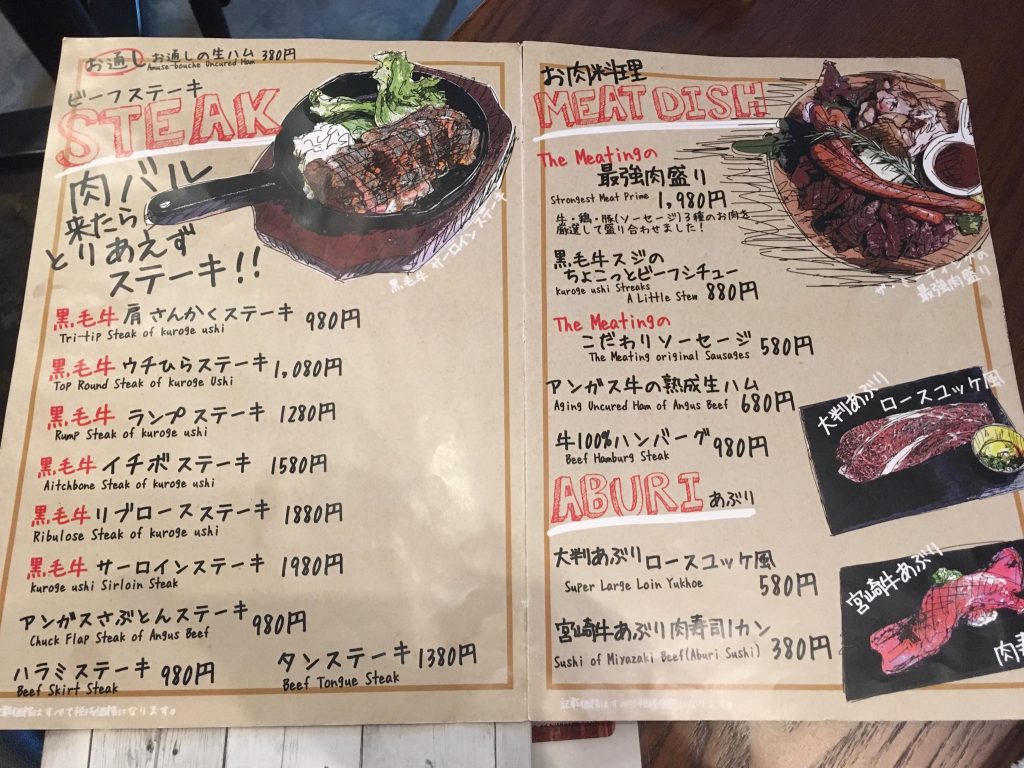 お通し お通しの生ハム 380円
Amuse-bouche Uncured Ham
ビーフステーキ
STEAK
肉バル
来たら
とりあえず
ステーキ!!
黒毛牛 サーロインステーキ
黒毛牛 肩さんかくステーキ 980円
Tri-tip Steak of kuroge ushi
黒毛牛 ウチひらステーキ 1,080円
Top Round Steak of kuroge Ushi
黒毛牛 ランプステーキ 1280円
Rump Steak of kuroge ushi
黒毛牛 イチボステーキ 1580円
Aitchbone Steak of kuroge ushi
黒毛牛 リブロースステーキ 1880円
Ribulose Steak of kuroge ushi
黒毛牛 サーロインステーキ 1980円
kuroge ushi Sirloin Steak
アンガスさぶとんステーキ 980円
Chuck Flap Steak of Angus Beef
ハラミステーキ 980円
Beef Skirt Steak
タンステーキ 1380円
Beef Tongue Steak
お肉料理
MEAT DISH
The Meatingの
最強肉盛り
Strongest Meat Prime 1,980円
牛・鶏・豚(ソーセージ)3種のお肉を
厳選して盛り合わせました!
ザ・ミーティングの
最強肉盛り
黒毛牛スジの
ちょこっとビーフシチュー
kuroge ushi Streaks
A Little Stew 880円
The Meatingの
こだわりソーセージ
The Meating original Sausages 580円
アンガス牛の熟成生ハム
Aging Uncured Ham of Angus Beef 680円
牛100%ハンバーグ
Beef Hamburg Steak 980円
大判あぶり
ロースユッケ風
ABURI あぶり
大判あぶり ロースユッケ風
Super Large Loin Yukhoe 580円
宮崎牛あぶり肉寿司1カン
Sushi of Miyazaki Beef(Aburi Sushi) 380円
宮崎牛あぶり
肉寿
記載価格はすべて税抜価格になります。